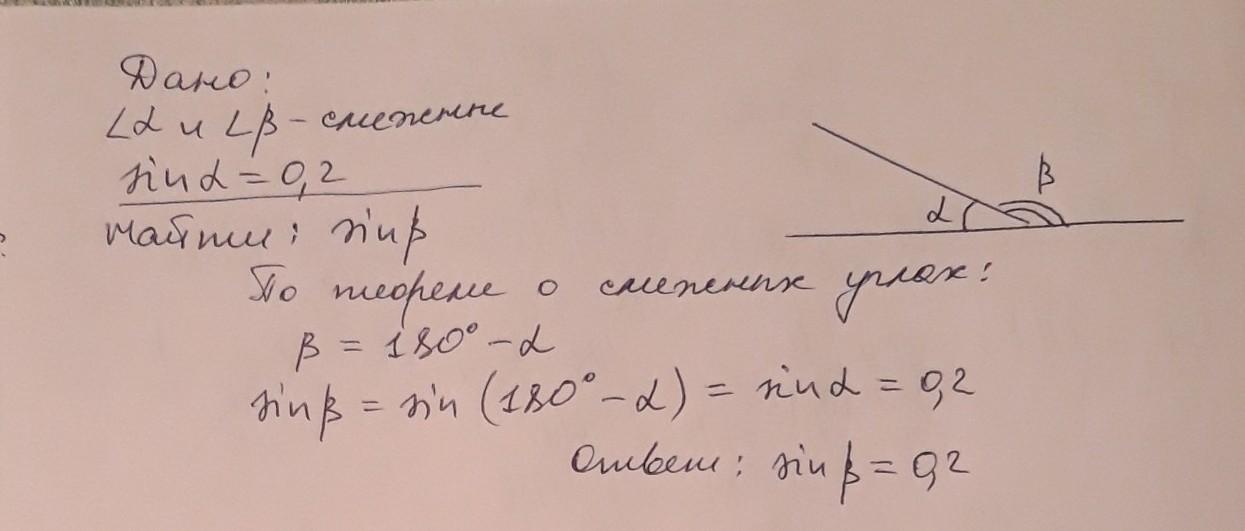 Дано:
∠α и ∠β - смежные
sin α = 0,2
Найти: sin β
α
β
По теореме о смежных углах:
β = 180° - α
sin β = sin (180° - α) = sin α = 0,2
Ответ: sin β = 0,2